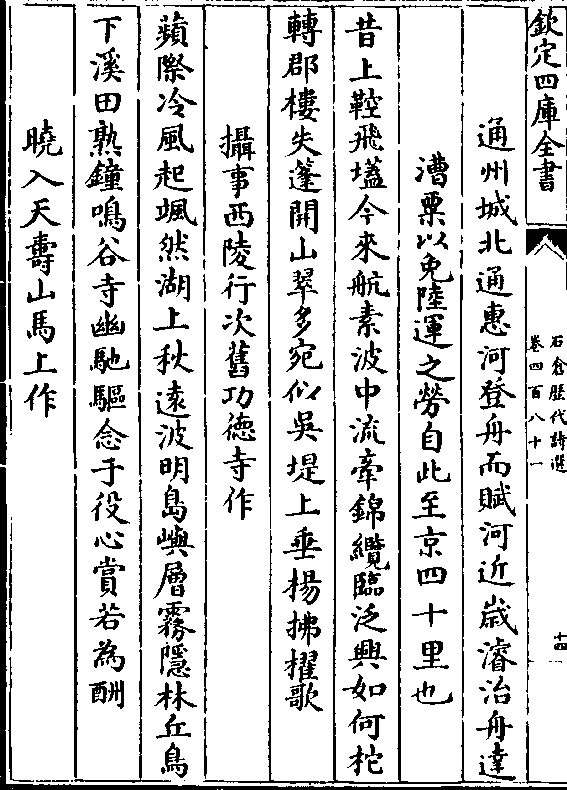 欽定四庫全書
石倉歷代詩選
卷四百八十一
十四
通州城北通惠河登舟而賦河近歲濬治舟達
漕粟以免陸運之勞自此至京四十里也
昔上鞚飛𡏖今來航素波中流牽錦纜臨泛興如何柁
轉郡樓失蓬開山翠多宛似吳堤上垂楊拂櫂歌
攝事西陵行次舊功德寺作
蘋際冷風起颯然湖上秋遠波明島嶼層霧隱林丘鳥
下溪田熟鐘鳴谷寺幽馳驅念于役心賞若為酬
曉入天壽山馬上作